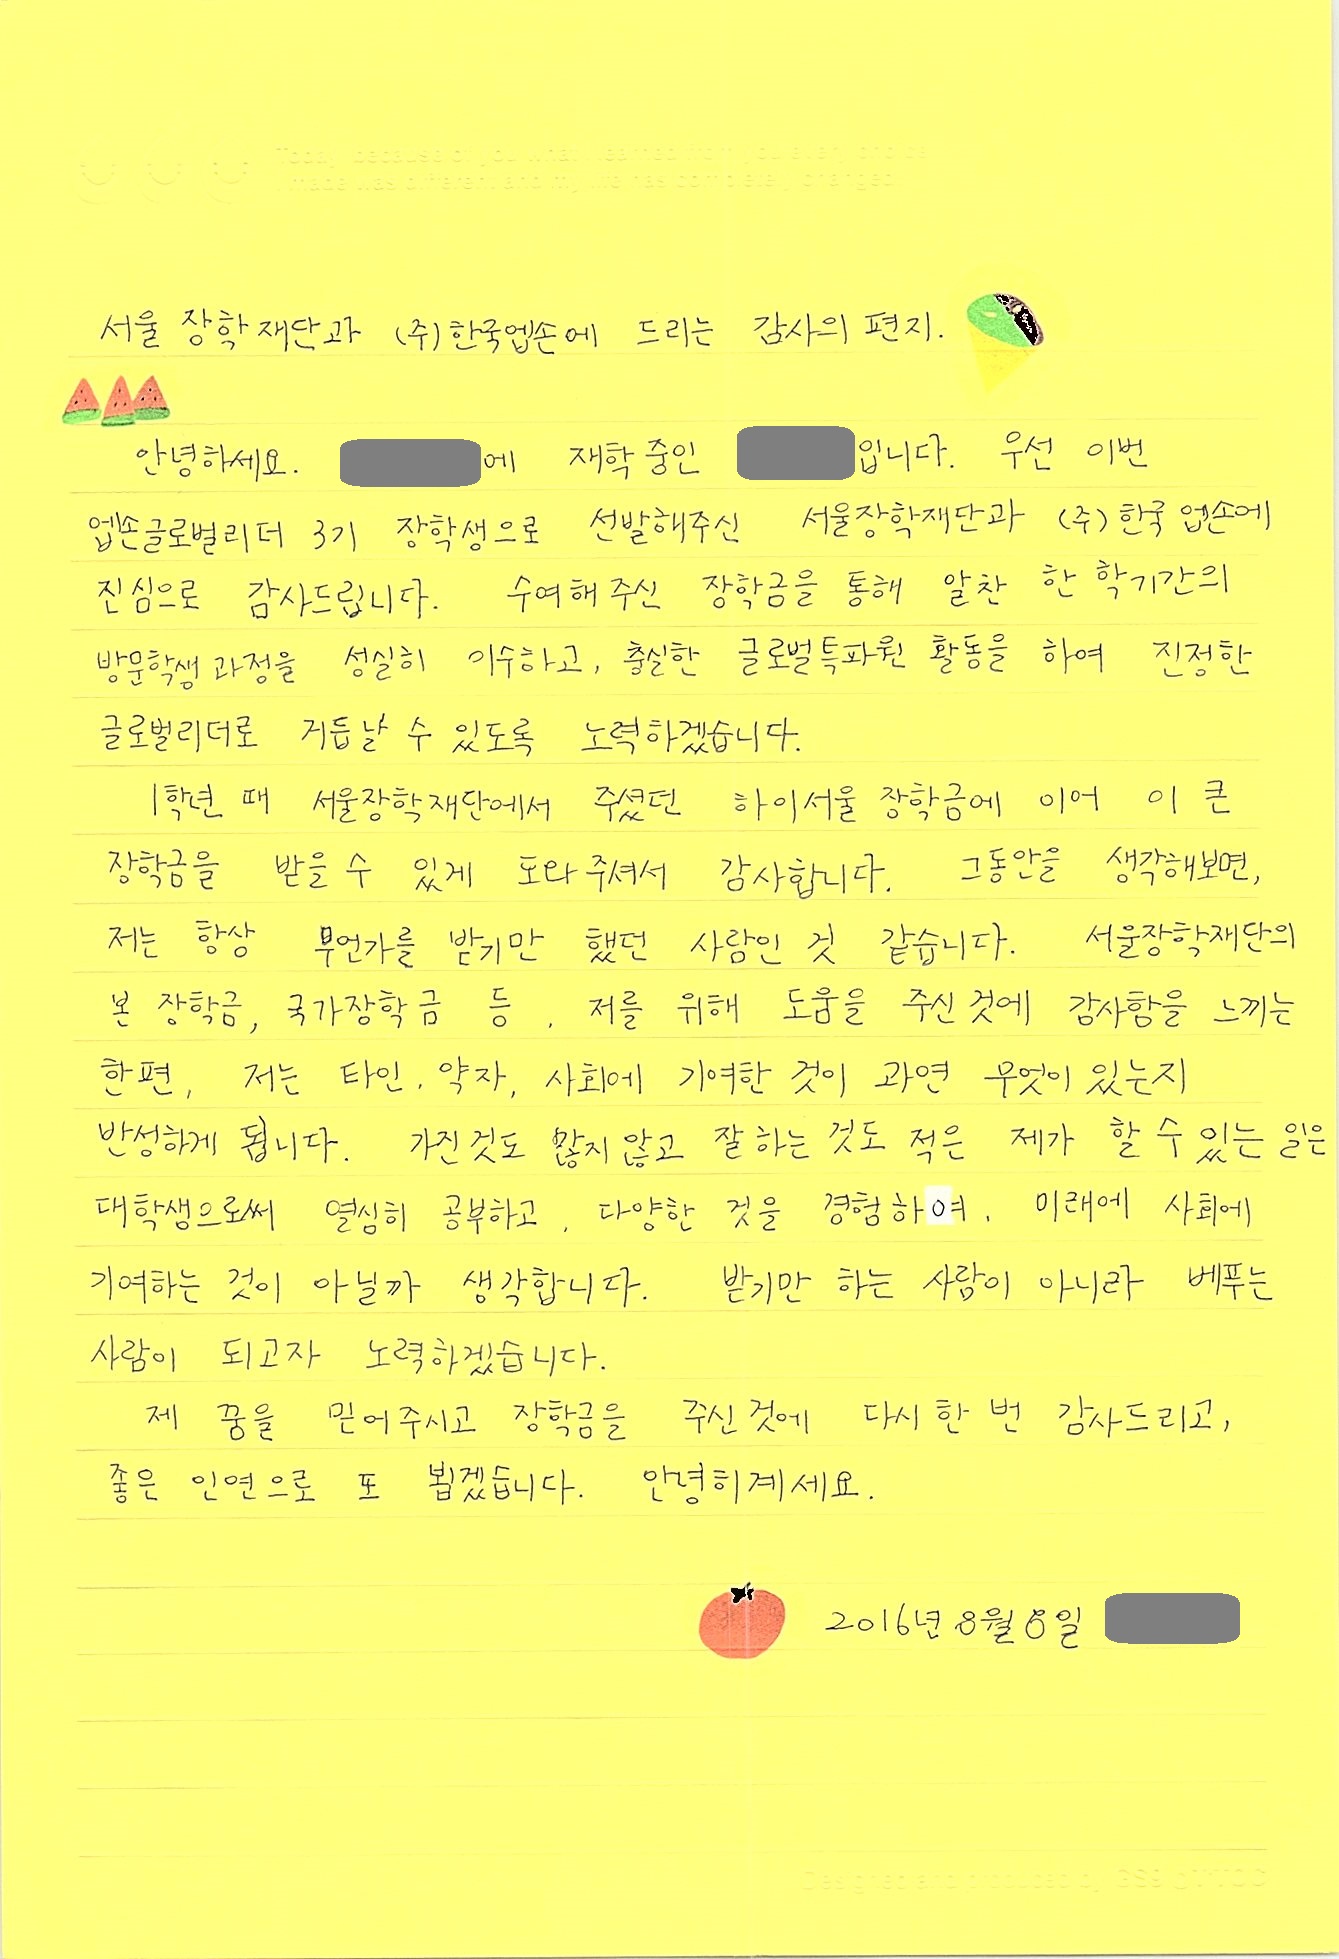 Today, because of you what I learned from you every choice
I made was different and my life has completely changed.
서울 장학 재단과 (주)한국엡손에 드리는 감사의 편지.
안녕하세요. 에 재학 중인 입니다. 우선 이번
엡손글로벌리더 3기 장학생으로 선발해주신 서울장학재단과 (주)한국 엡손에
진심으로 감사드립니다. 수여해 주신 장학금을 통해 알찬 한 학기간의
방문학생 과정을 성실히 이수하고, 충실한 글로벌특파원 활동을 하여 진정한
글로벌리더로 거듭날 수 있도록 노력하겠습니다.
1학년 때 서울장학재단에서 주셨던 하이서울 장학금에 이어 이 큰
장학금을 받을 수 있게 도와주셔서 감사합니다. 그동안을 생각해보면,
저는 항상 무언가를 받기만 했던 사람인 것 같습니다. 서울장학재단의
본 장학금, 국가장학금 등, 저를 위해 도움을 주신 것에 감사함을 느끼는
한편, 저는 타인, 약자, 사회에 기여한 것이 과연 무엇이 있는지
반성하게 됩니다. 가진것도 많지 않고 잘 하는 것도 적은 제가 할 수 있는 일은
대학생으로써 열심히 공부하고, 다양한 것을 경험하여, 미래에 사회에
기여하는 것이 아닐까 생각합니다. 받기만 하는 사람이 아니라 베푸는
사람이 되고자 노력하겠습니다.
제 꿈을 믿어주시고 장학금을 주신 것에 다시 한 번 감사드리고,
좋은 인연으로 또 뵙겠습니다. 안녕히계세요.
2016년 8월 8일